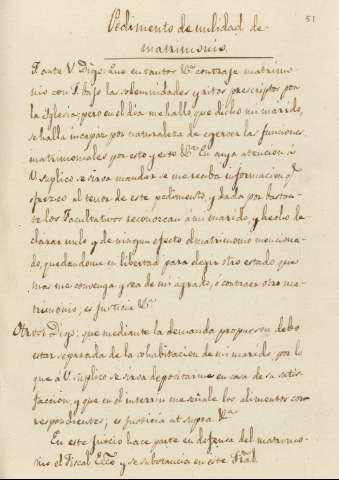 51
Pedimento de nulidad de
matrimonio.
F. ante V. Digo: que en tantos &c. contraje matrimo-
nio con F. bajo las solemnidades y ritos prescriptos por
la Iglesia; pero en el dia me hallo que dicho mi marido,
se halla incapaz por naturaleza de egercer las funciones
matrimoniales por esto y esto &c. En cuya atencion á
V. suplico se sirva mandar se me reciba informacion qe.
ofrezco al tenor de este pedimento, y dada por bastan-
te los Facultativos reconozcan á mi marido, y hecho de-
clarar nulo y de ningun efecto el matrimonio menciona-
do, quedandome en libertad para elegir otro estado que
mas me convenga y sea de mi agrado, ó contraer otro ma-
trimonio; es justicia &c.
Otrosi Digo: que mediante la demanda propuesta debo
estar separada de la cohabitacion de mi marido, por lo
que á V. suplico se sirva depositarme en casa de su satis-
faccion, y que en el interin me señale los alimentos cor-
respondientes; es justicia ut supra &c.
En este juicio hace parte en defensa del matrimo-
nio el Fiscal Ecco. y se substancia en este Tral.